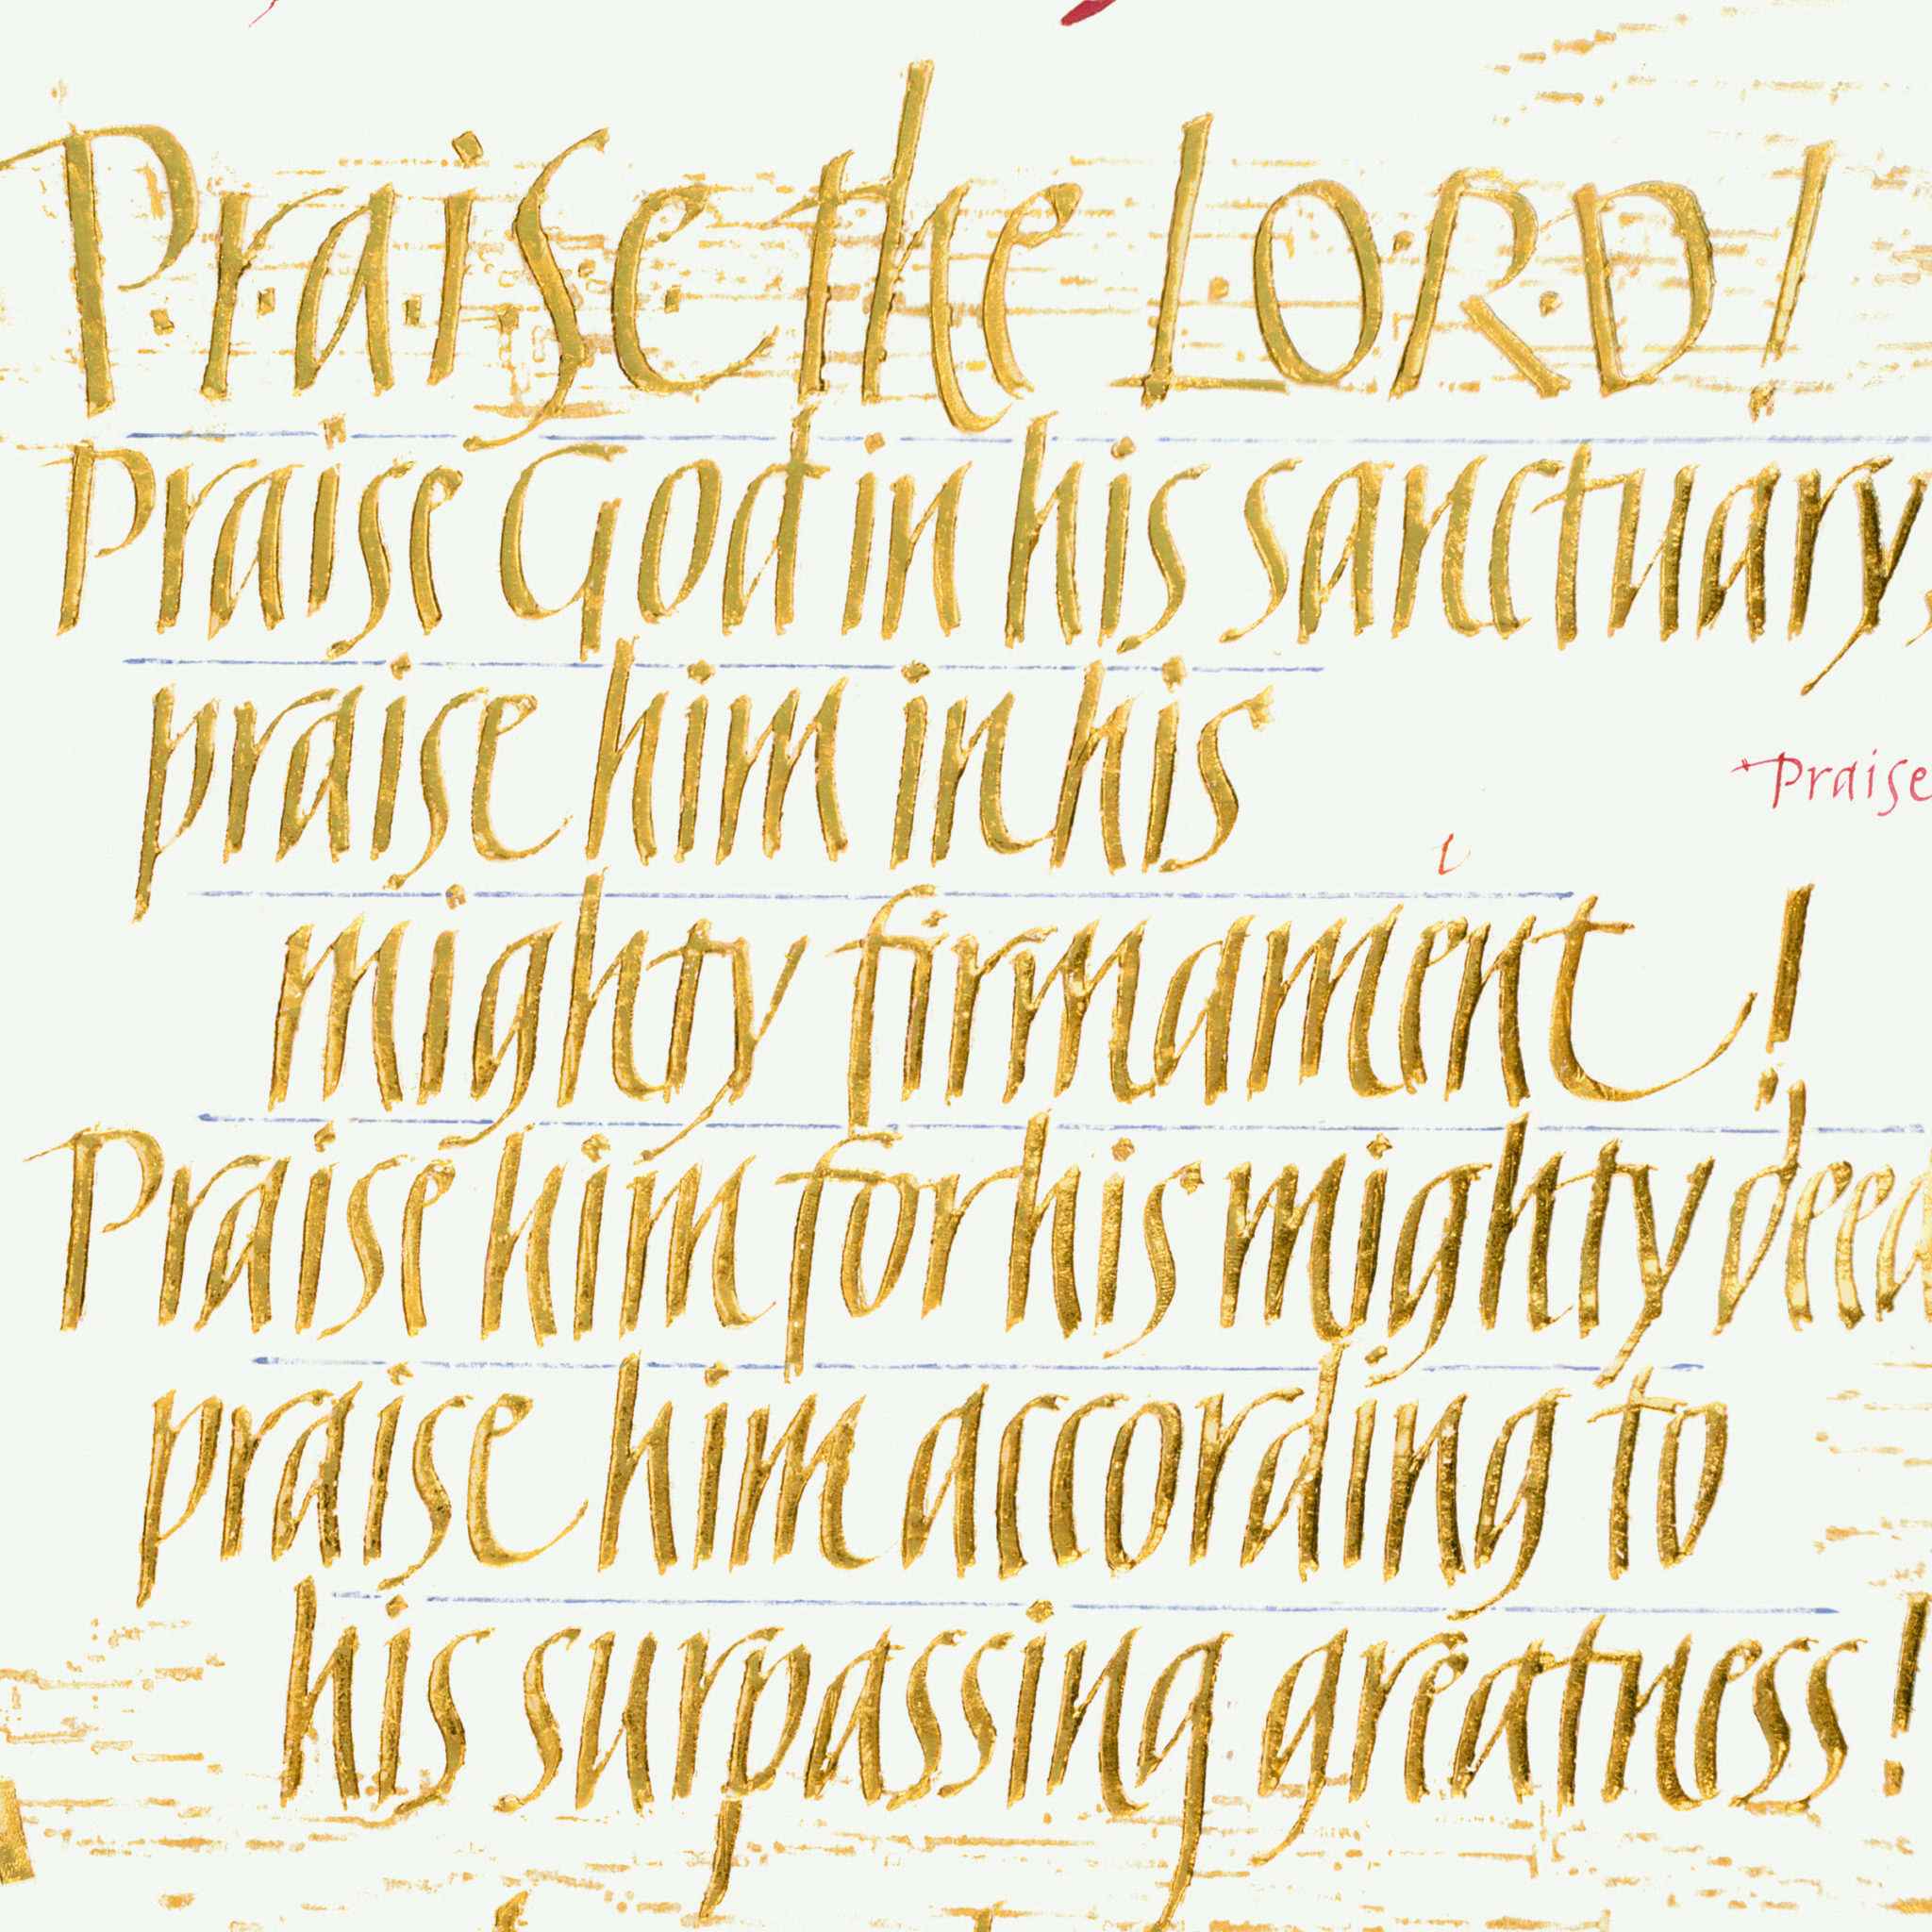 Praise the LORD!
Praise God in his sanctuary,
praise him in his
Praise
i
mighty firmament!
Praise him for his mighty deed
praise him according to
his surpassing greatness!